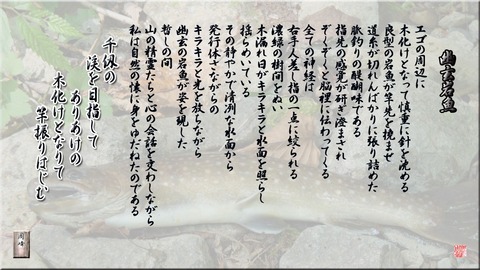 幽玄岩魚
エゴの周辺に
木化けとなって慎重に針を沈める
良型の岩魚が竿先を撓ませ
道糸が切れんばかりに張り詰めた
脈釣りの醍醐味である
指先の感覚が研ぎ澄まされ
ぞくぞくと脳裡に伝わってくる
全ての神経は
右手人差し指の一点に絞られる
濃緑の樹間をぬい
木漏れ日がキラキラと水面を照らし
揺らめいている
その静やかで清冽な水面から
発行体さながらの
キラキラと光を放ちながら
幽玄の岩魚が姿を現した
暫しの間
山の精霊たちと心の会話を交わしながら
私は自然の懐に身をゆだねたのである
千級の
渓を目指して
ありあけの
木化けとなりて
竿振りはじむ